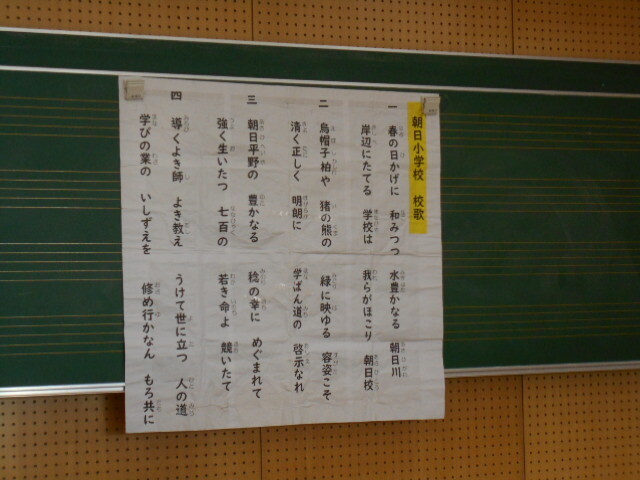 朝日小学校 校歌
一 春の日かげに 和みつつ 水豊かなる 朝日川
岸辺にたてる 学校は 我らがほこり 朝日校
二 烏帽子柏や 猪の熊の 緑に映ゆる 容姿こそ
清く正しく 明朗に 学ばん道の 啓示なれ
三 朝日平野の 豊かなる 稔の幸に めぐまれて
強く生いたつ 七百の 若き命よ 競いたて
四 導くよき師 よき教え うけて世に立つ 人の道
学びの業の いしずえを 修め行かなん もろ共に